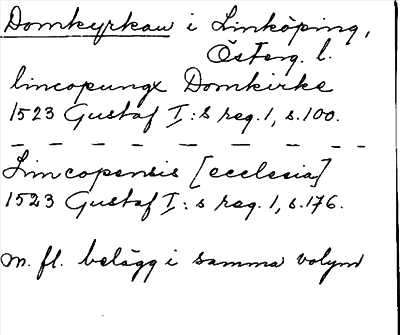 Domkyrkan i Linköping,
Österg. l.
lincopungx Domkirke
1523 Gustaf I:s reg. 1, s. 100.
— — — — — — — — —
Limcopensis [ecclesia]
1523 Gustaf I:s reg. 1, s. 176.
m. fl. belägg i samma volym